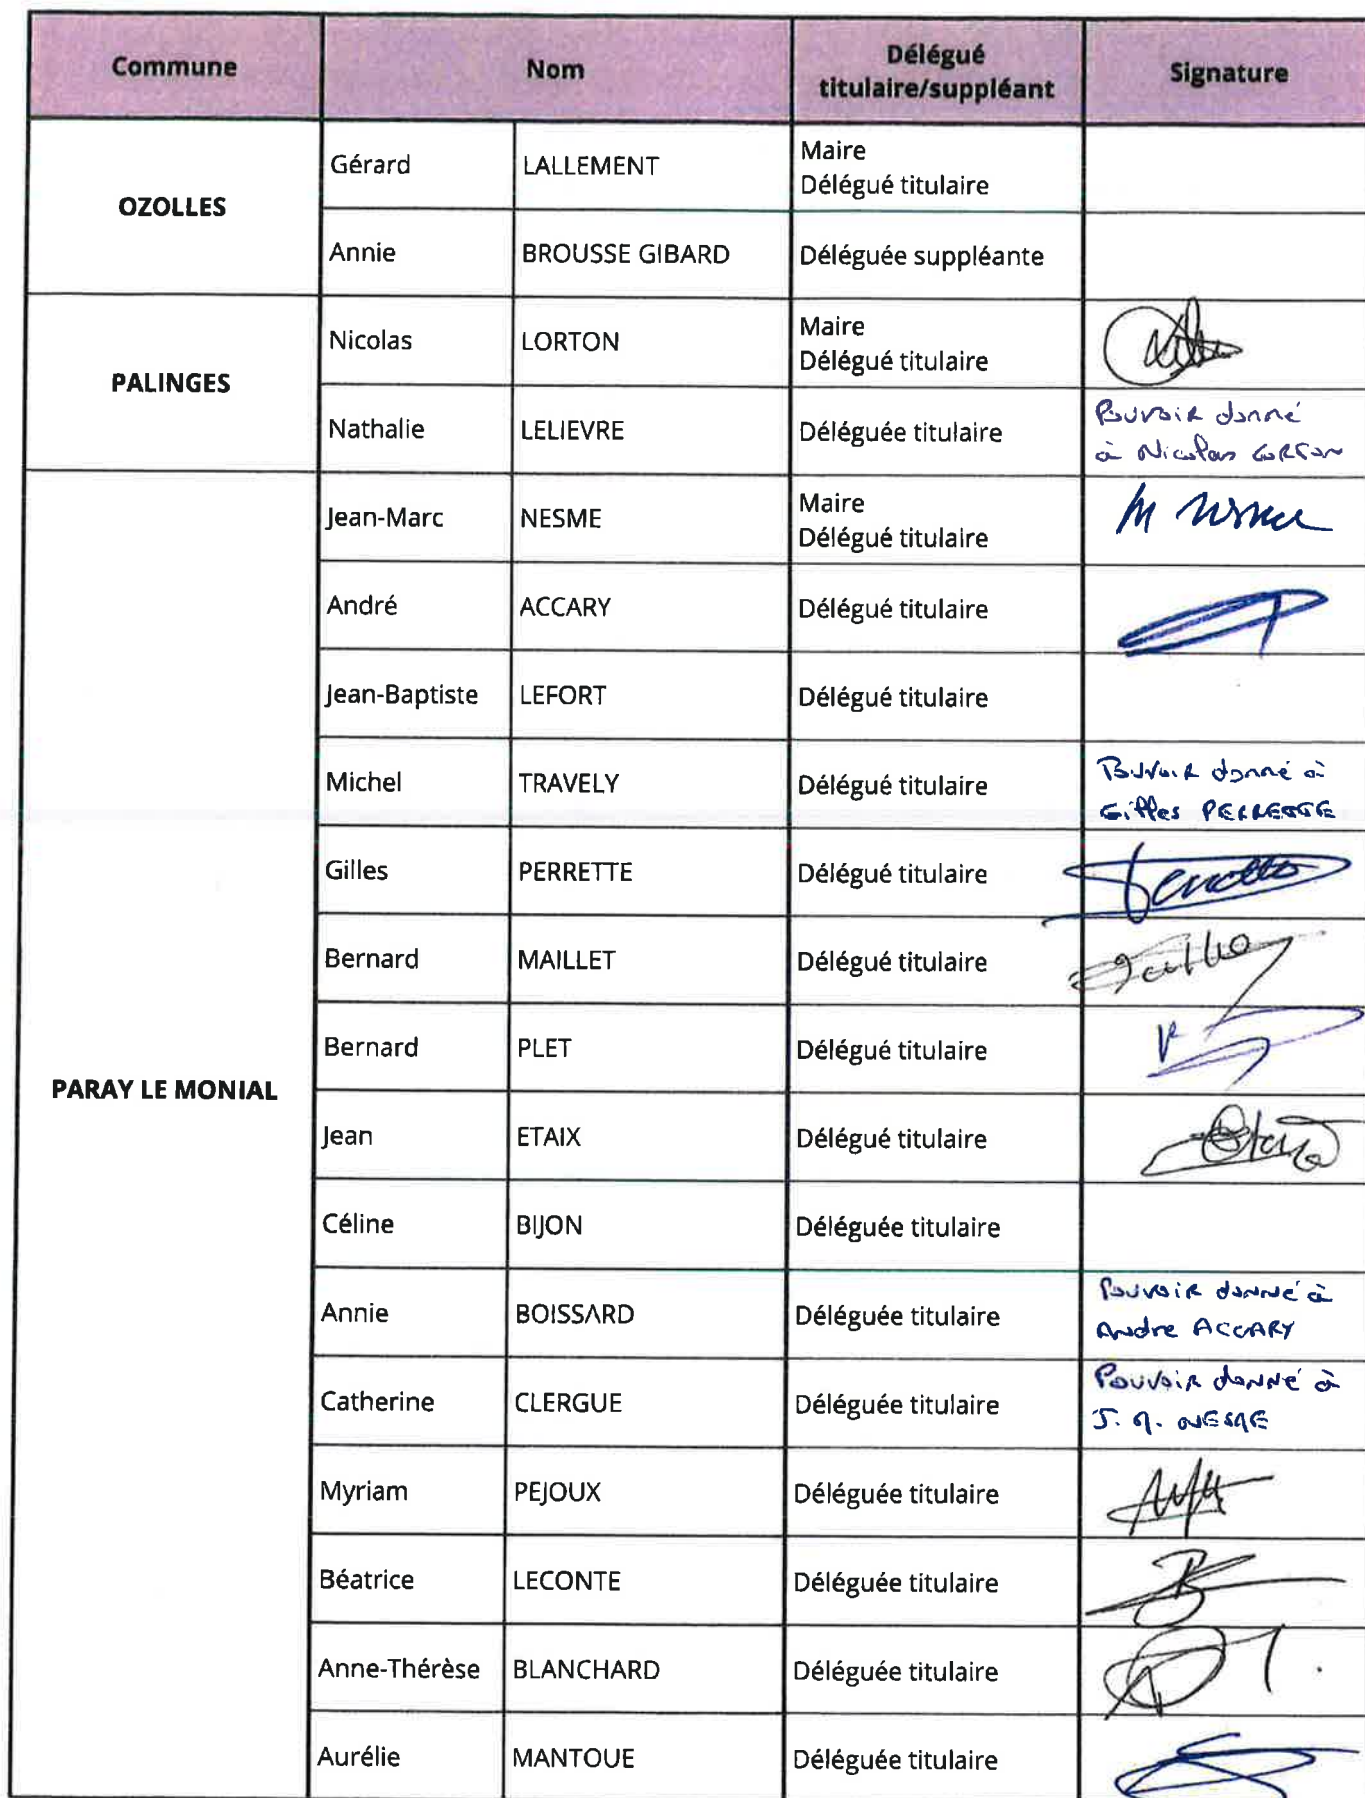 Commune Nom Délégué titulaire/suppléant Signature
OZOLLES
Gérard LALLEMENT Maire
Délégué titulaire
Annie BROUSSE GIBARD Déléguée suppléante
PALINGES
Nicolas LORTON Maire
Délégué titulaire
Nathalie LELIEVRE Déléguée titulaire Pouvoir donné
à Nicolas LORTON
PARAY LE MONIAL
Jean-Marc NESME Maire
Délégué titulaire
André ACCARY Délégué titulaire
Jean-Baptiste LEFORT Délégué titulaire
Michel TRAVELY Délégué titulaire Pouvoir donné à
Gilles PERRETTE
Gilles PERRETTE Délégué titulaire
Bernard MAILLET Délégué titulaire
Bernard PLET Délégué titulaire
Jean ETAIX Délégué titulaire
Céline BIJON Déléguée titulaire
Annie BOISSARD Déléguée titulaire Pouvoir donné à
Andre ACCARY
Catherine CLERGUE Déléguée titulaire Pouvoir donné à
J. M. NESME
Myriam PEJOUX Déléguée titulaire
Béatrice LECONTE Déléguée titulaire
Anne-Thérèse BLANCHARD Déléguée titulaire
Aurélie MANTOUE Déléguée titulaire